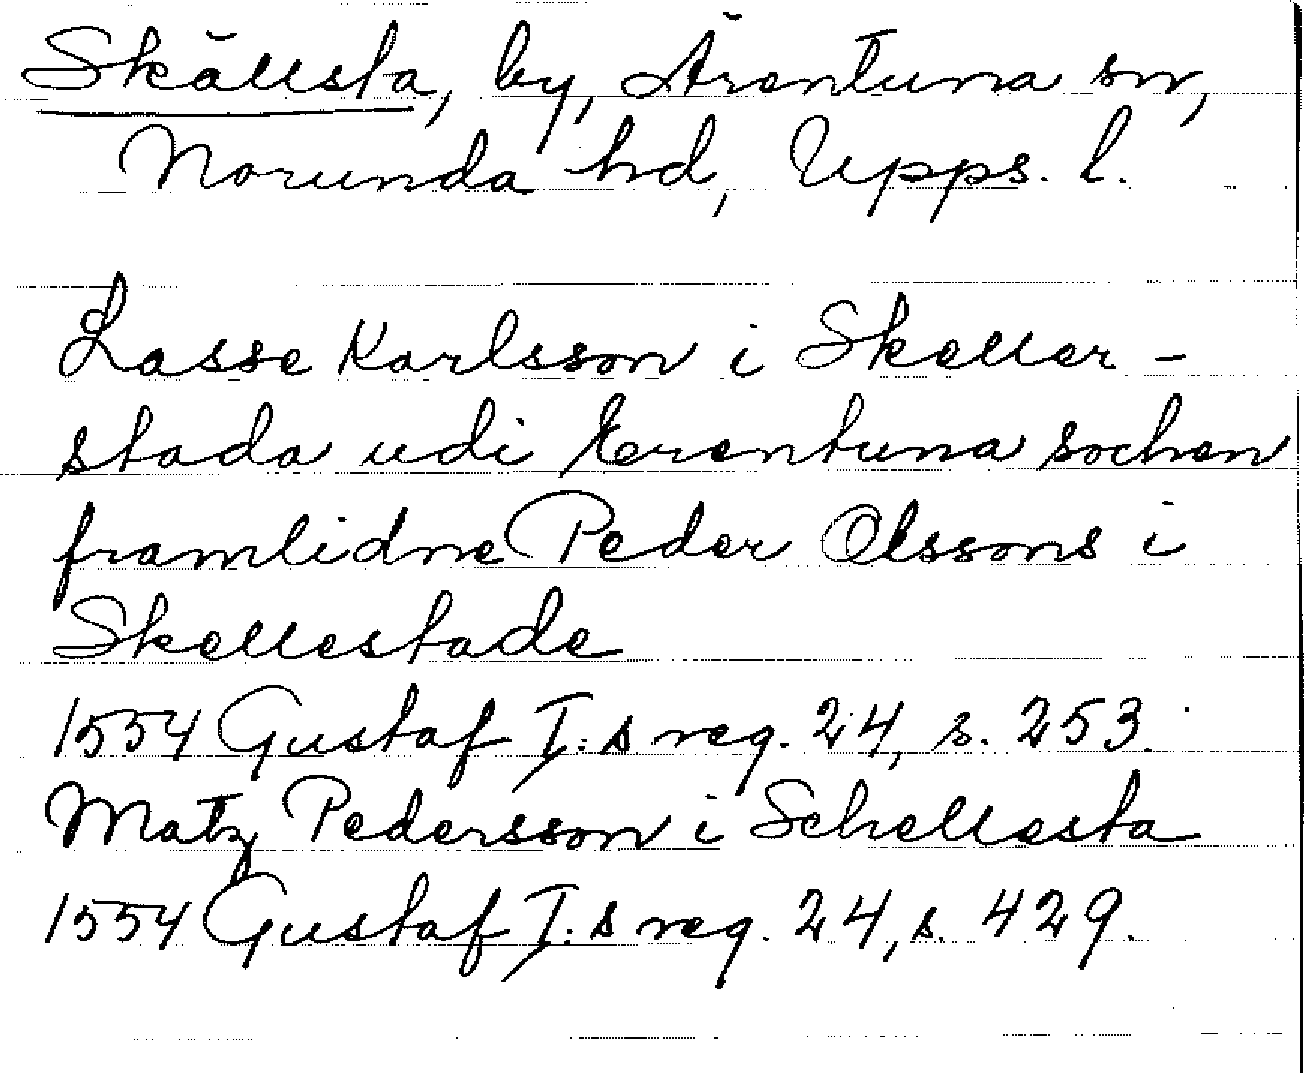 Skällsta, by, Ärentuna sn,
Norunda hd, Upps. l.
Lasse Karlsson i Skeller-
stada udi Erentuna sochen
framlidne Peder Olssons i
Skellestade
1554 Gustaf I:s reg. 24, s. 253.
Matz Pedersson i Schellesta
1554 Gustaf I:s reg. 24, s. 429.